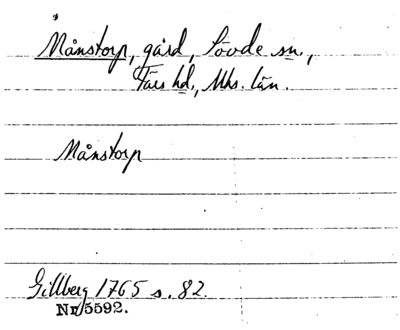 Månstorp, gård, Sövde sn.,
Färs hd., Mhs. län.
Månstorp
Gillberg 1765 s. 82.
Nr 5592.